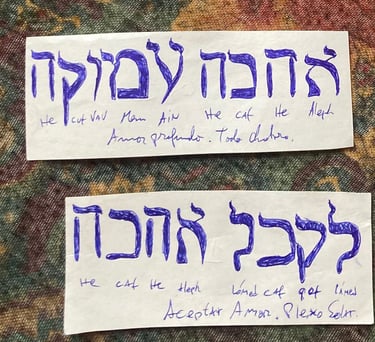 אהכה עמוקה
He cof VAV Mem AiN He caf He Aleph
Amor profundo. Todo chakra.
לקכל אהכה
He caf He Aleph Lámed caf qof Lámed
Aceptar Amor. Plexo Solar.